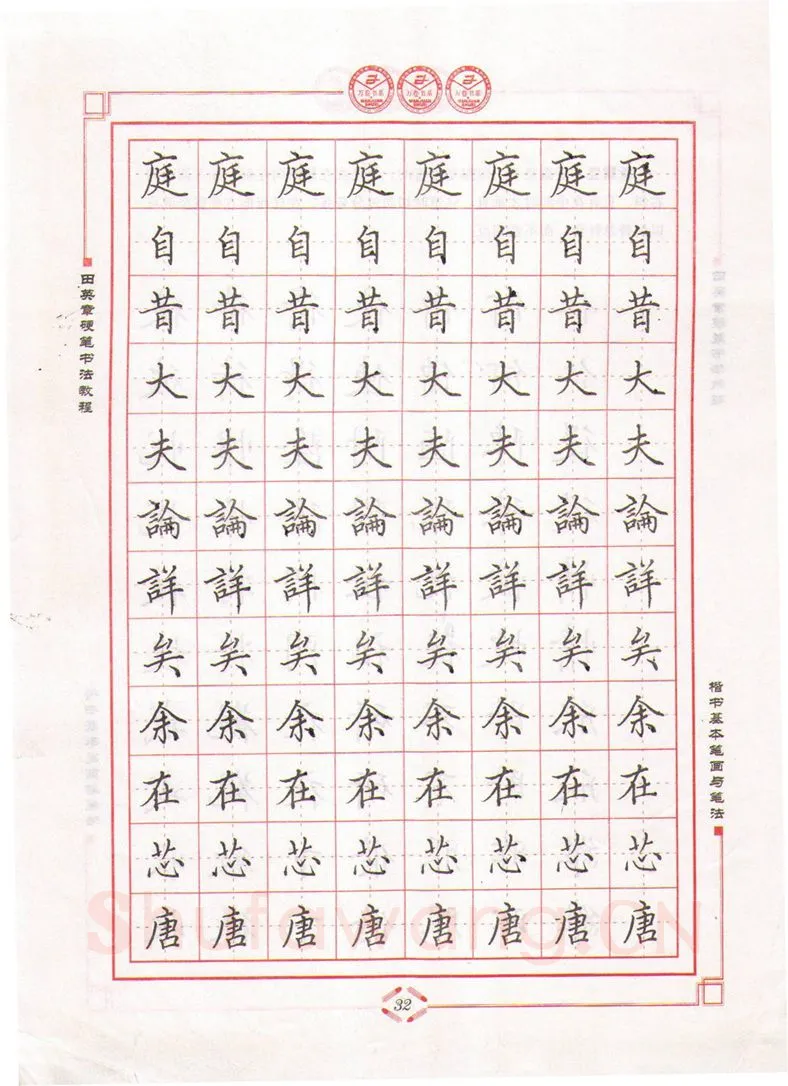 万卷书系 万卷书系 万卷书系
田英章硬笔书法教程
庭庭庭庭庭庭庭庭
自自自自自自自自
昔昔昔昔昔昔昔昔
大大大大大大大大
夫夫夫夫夫夫夫夫
論論論論論論論論
詳詳詳詳詳詳詳詳
矣矣矣矣矣矣矣矣
余余余余余余余余
在在在在在在在在
芯芯芯芯芯芯芯芯
唐唐唐唐唐唐唐唐
楷书基本笔画与笔法
Shufawang.CN
32